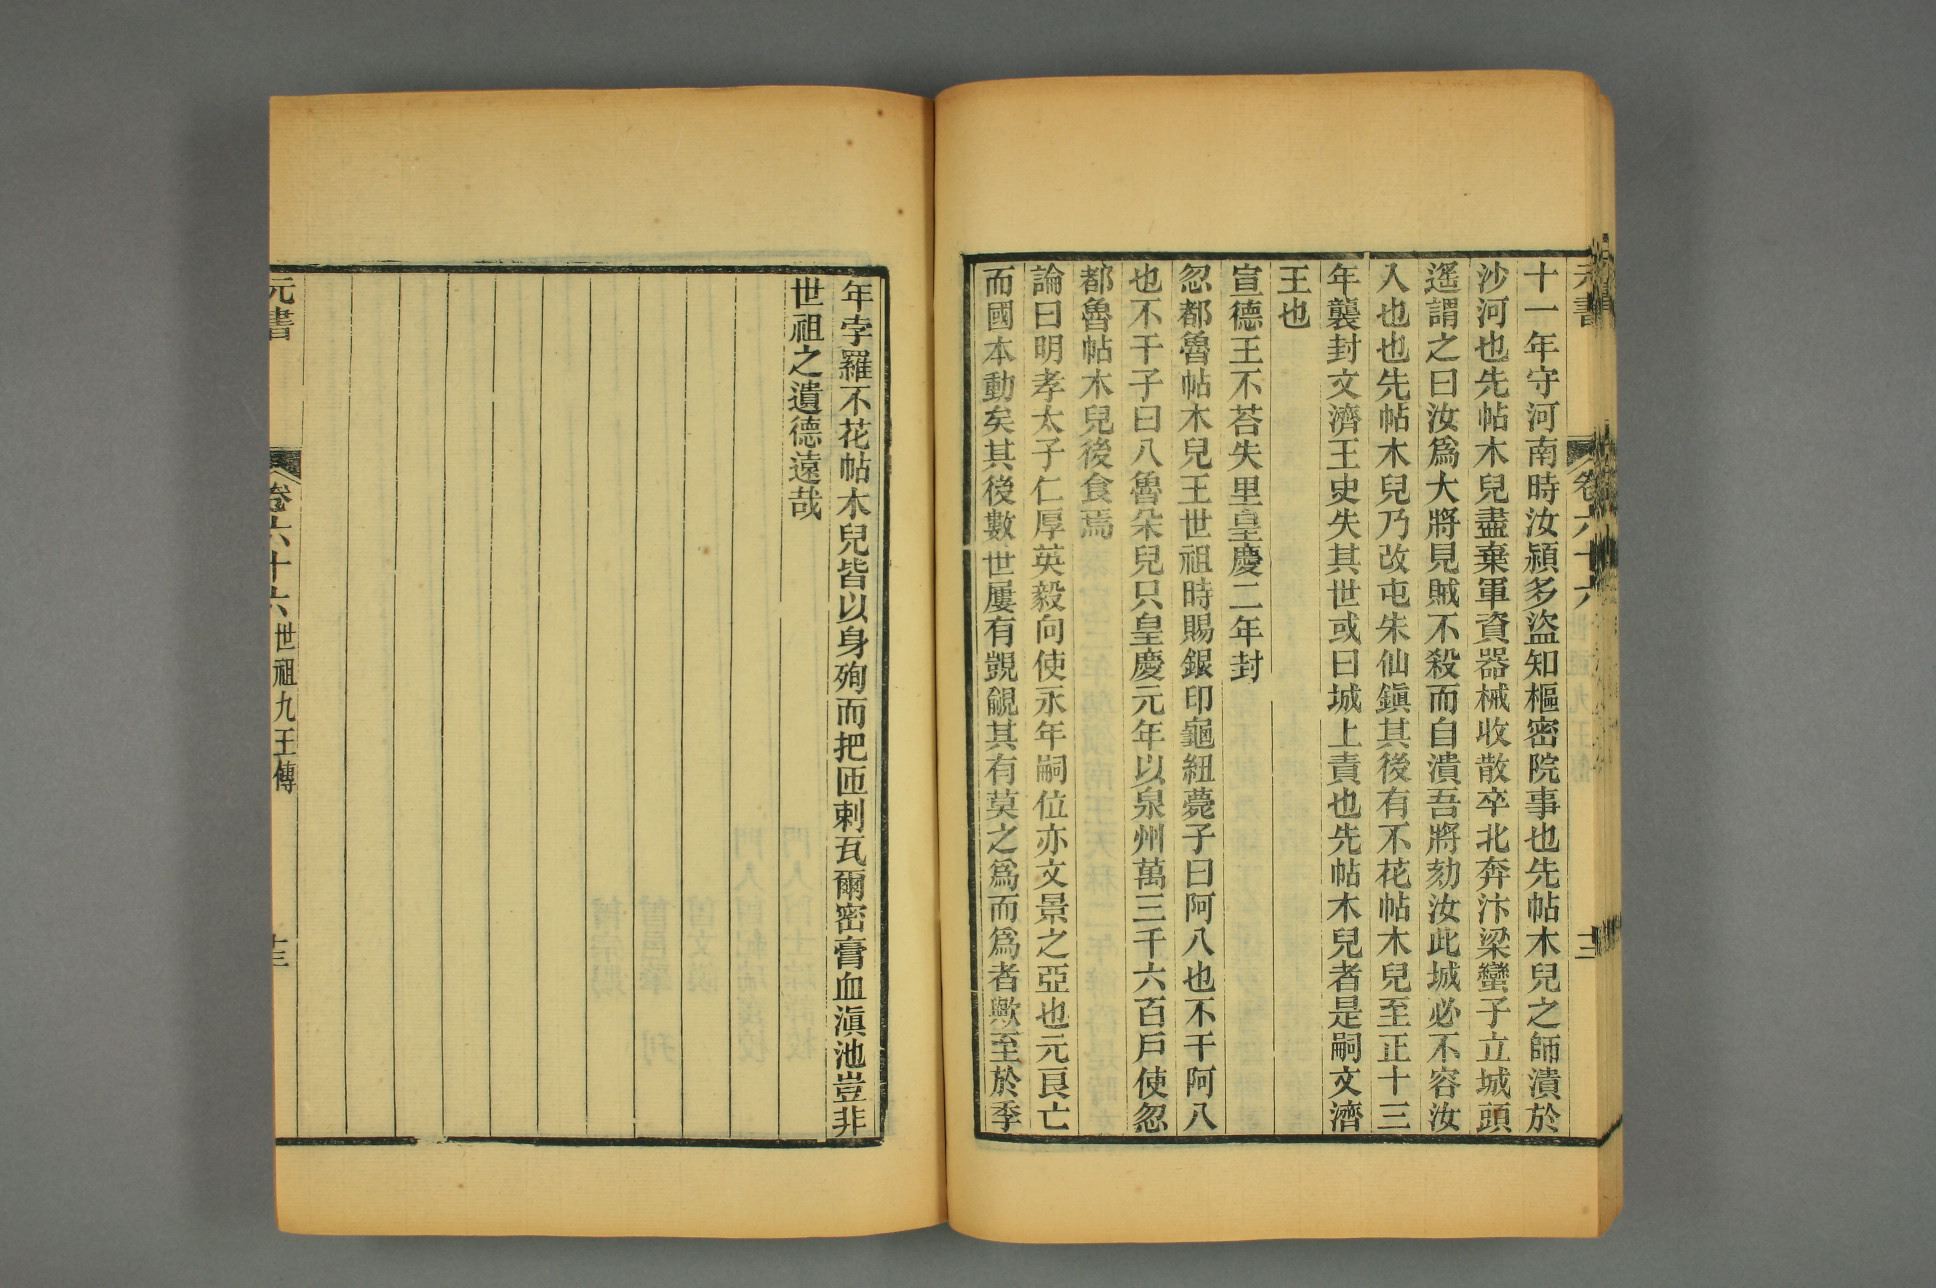 元書 卷六十六
十一年守河南時汝潁多盜知樞密院事也先帖木兒之師潰於
沙河也先帖木兒盡棄軍資器械收散卒北奔汴梁蠻子立城頭
遙謂之曰汝爲大將見賊不殺而自潰吾將劾汝此城必不容汝
入也也先帖木兒乃改屯朱仙鎮其後有不花帖木兒至正十三
年襲封文濟王史失其世或曰城上責也先帖木兒者是嗣文濟
王也
宣德王不荅失里皇慶二年封
忽都魯帖木兒王世祖時賜銀印龜紐薨子曰阿八也不干阿八
也不干子曰八魯朵兒只皇慶元年以泉州萬三千六百戶使忽
都魯帖木兒後食焉
論曰明孝太子仁厚英毅向使永年嗣位亦文景之亞也元良亡
而國本動矣其後數世屢有覬覦其有莫之爲而爲者歟至於季
年孛羅不花帖木兒皆以身殉而把匝剌瓦爾密膏血滇池豈非
世祖之遺德遠哉
元書 卷六十六 世祖九王傳 十三